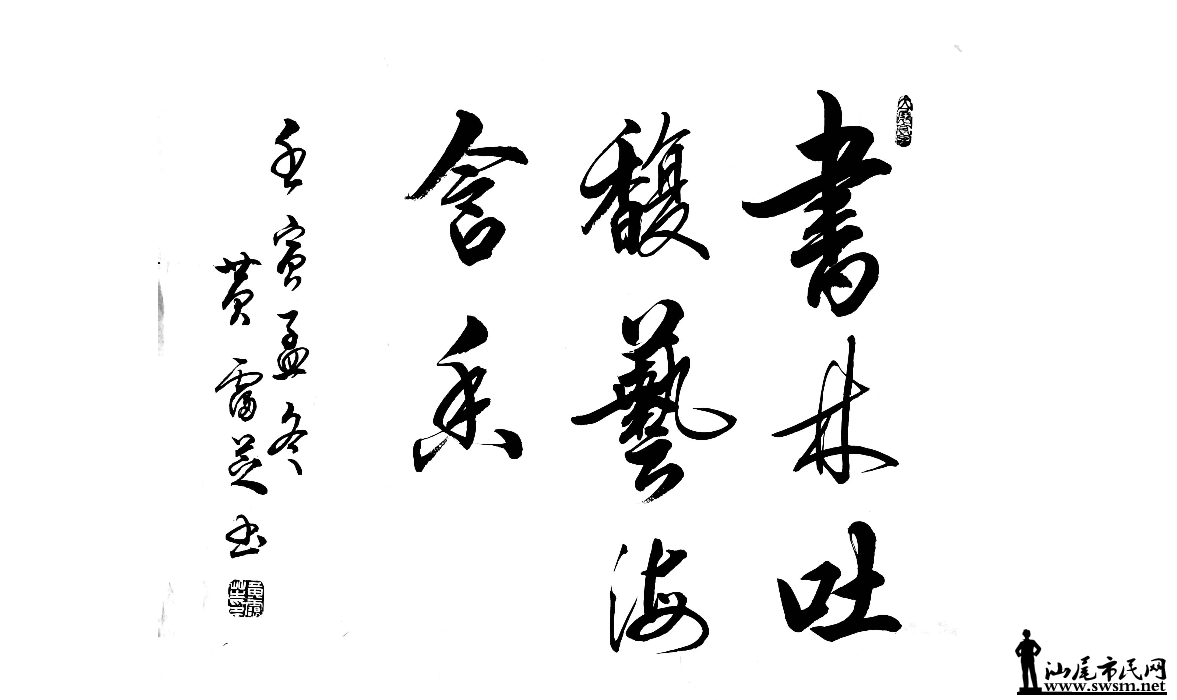 書林吐
馥藝海
含香
壬寅孟冬
黄雷芝书
汕尾市民网
www.swsm.net